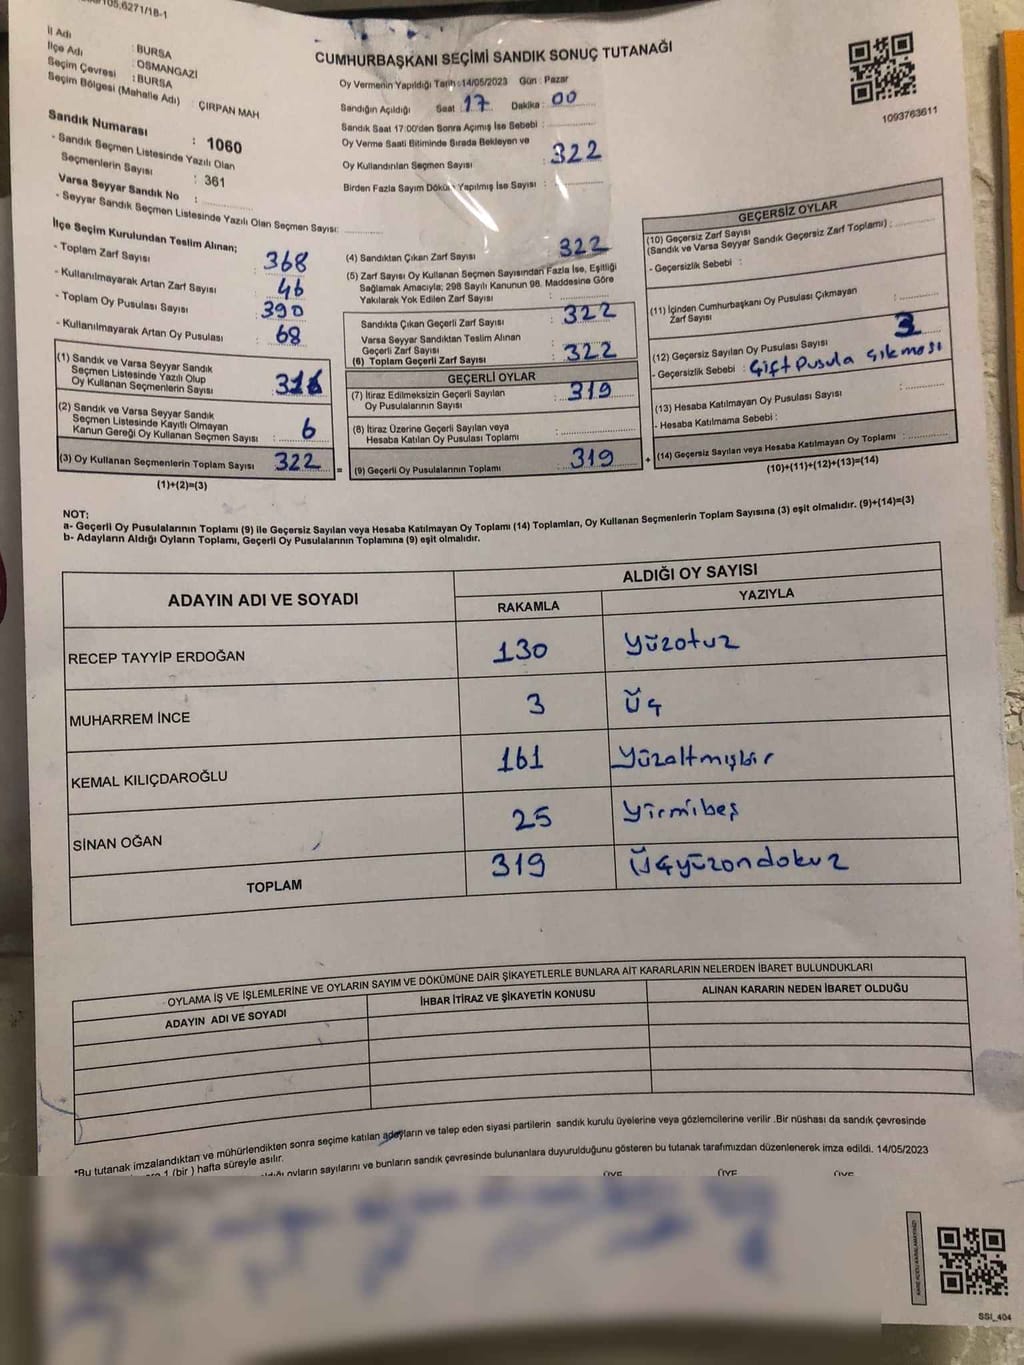 105,6271/1B-1
İl Adı : BURSA
İlçe Adı : OSMANGAZİ
Seçim Çevresi : BURSA
Seçim Bölgesi (Mahalle Adı) : ÇIRPAN MAH
Sandık Numarası : 1060
- Sandık Seçmen Listesinde Yazılı Olan
Seçmenlerin Sayısı : 361
Varsa Seyyar Sandık No :
- Seyyar Sandık Seçmen Listesinde Yazılı Olan Seçmen Sayısı:
CUMHURBAŞKANI SEÇİMİ SANDIK SONUÇ TUTANAĞI
Oy Vermenin Yapıldığı Tarih :14/05/2023 Gün : Pazar
Sandığın Açıldığı Saat : 17 Dakika : 00
Sandık Saat 17:00'den Sonra Açımış İse Sebebi :
Oy Verme Saati Bitiminde Sırada Bekleyen ve
Oy Kullandırılan Seçmen Sayısı : 322
Birden Fazla Sayım Döküm Yapılmış İse Sayısı :
1093763611
İlçe Seçim Kurulundan Teslim Alınan;
- Toplam Zarf Sayısı : 368
- Kullanılmayarak Artan Zarf Sayısı : 46
- Toplam Oy Pusulası Sayısı : 390
- Kullanılmayarak Artan Oy Pusulası : 68
(1) Sandık ve Varsa Seyyar Sandık
Seçmen Listesinde Yazılı Olup
Oy Kullanan Seçmenlerin Sayısı : 316
(2) Sandık ve Varsa Seyyar Sandık
Seçmen Listesinde Kayıtlı Olmayan
Kanun Gereği Oy Kullanan Seçmen Sayısı : 6
(3) Oy Kullanan Seçmenlerin Toplam Sayısı 322 =
(1)+(2)=(3)
(4) Sandıktan Çıkan Zarf Sayısı : 322
(5) Zarf Sayısı Oy Kullanan Seçmen Sayısından Fazla İse, Eşitliği
Sağlamak Amacıyla; 298 Sayılı Kanunun 98. Maddesine Göre
Yakılarak Yok Edilen Zarf Sayısı :
Sandıkta Çıkan Geçerli Zarf Sayısı : 322
Varsa Seyyar Sandıktan Teslim Alınan
Geçerli Zarf Sayısı :
(6) Toplam Geçerli Zarf Sayısı : 322
GEÇERLİ OYLAR
(7) İtiraz Edilmeksizin Geçerli Sayılan
Oy Pusulalarının Sayısı : 319
(8) İtiraz Üzerine Geçerli Sayılan veya
Hesaba Katılan Oy Pusulası Toplamı :
(9) Geçerli Oy Pusulalarının Toplamı : 319 +
GEÇERSİZ OYLAR
(10) Geçersiz Zarf Sayısı
(Sandık ve Varsa Seyyar Sandık Geçersiz Zarf Toplamı) :
- Geçersizlik Sebebi :
(11) İçinden Cumhurbaşkanı Oy Pusulası Çıkmayan
Zarf Sayısı :
(12) Geçersiz Sayılan Oy Pusulası Sayısı : 3
- Geçersizlik Sebebi : Çift Pusula çıkması
(13) Hesaba Katılmayan Oy Pusulası Sayısı :
- Hesaba Katılmama Sebebi :
(14) Geçersiz Sayılan veya Hesaba Katılmayan Oy Toplamı :
(10)+(11)+(12)+(13)=(14)
NOT:
a- Geçerli Oy Pusulalarının Toplamı (9) ile Geçersiz Sayılan veya Hesaba Katılmayan Oy Toplamı (14) Toplamları, Oy Kullanan Seçmenlerin Toplam Sayısına (3) eşit olmalıdır. (9)+(14)=(3)
b- Adayların Aldığı Oyların Toplamı, Geçerli Oy Pusulalarının Toplamına (9) eşit olmalıdır.
ADAYIN ADI VE SOYADI ALDIĞI OY SAYISI
RAKAMLA YAZIYLA
RECEP TAYYİP ERDOĞAN 130 yüzotuz
MUHARREM İNCE 3 üç
KEMAL KILIÇDAROĞLU 161 yüzaltmışbir
SİNAN OĞAN 25 yirmibeş
TOPLAM 319 üçyüzondokuz
OYLAMA İŞ VE İŞLEMLERİNE VE OYLARIN SAYIM VE DÖKÜMÜNE DAİR ŞİKAYETLERLE BUNLARA AİT KARARLARIN NELERDEN İBARET BULUNDUKLARI
ADAYIN ADI VE SOYADI İHBAR İTİRAZ VE ŞİKAYETİN KONUSU ALINAN KARARIN NEDEN İBARET OLDUĞU
*Bu tutanak imzalandıktan ve mühürlendikten sonra seçime katılan adayların ve talep eden siyasi partilerin sandık kurulu üyelerine veya gözlemcilerine verilir .Bir nüshası da sandık çevresinde
1 (bir ) hafta süreyle asılır.
oyların sayılarını ve bunların sandık çevresinde bulunanlara duyurulduğunu gösteren bu tutanak tarafımızdan düzenlenerek imza edildi. 14/05/2023
ÜYE ÜYE ÜYE
SSI_404